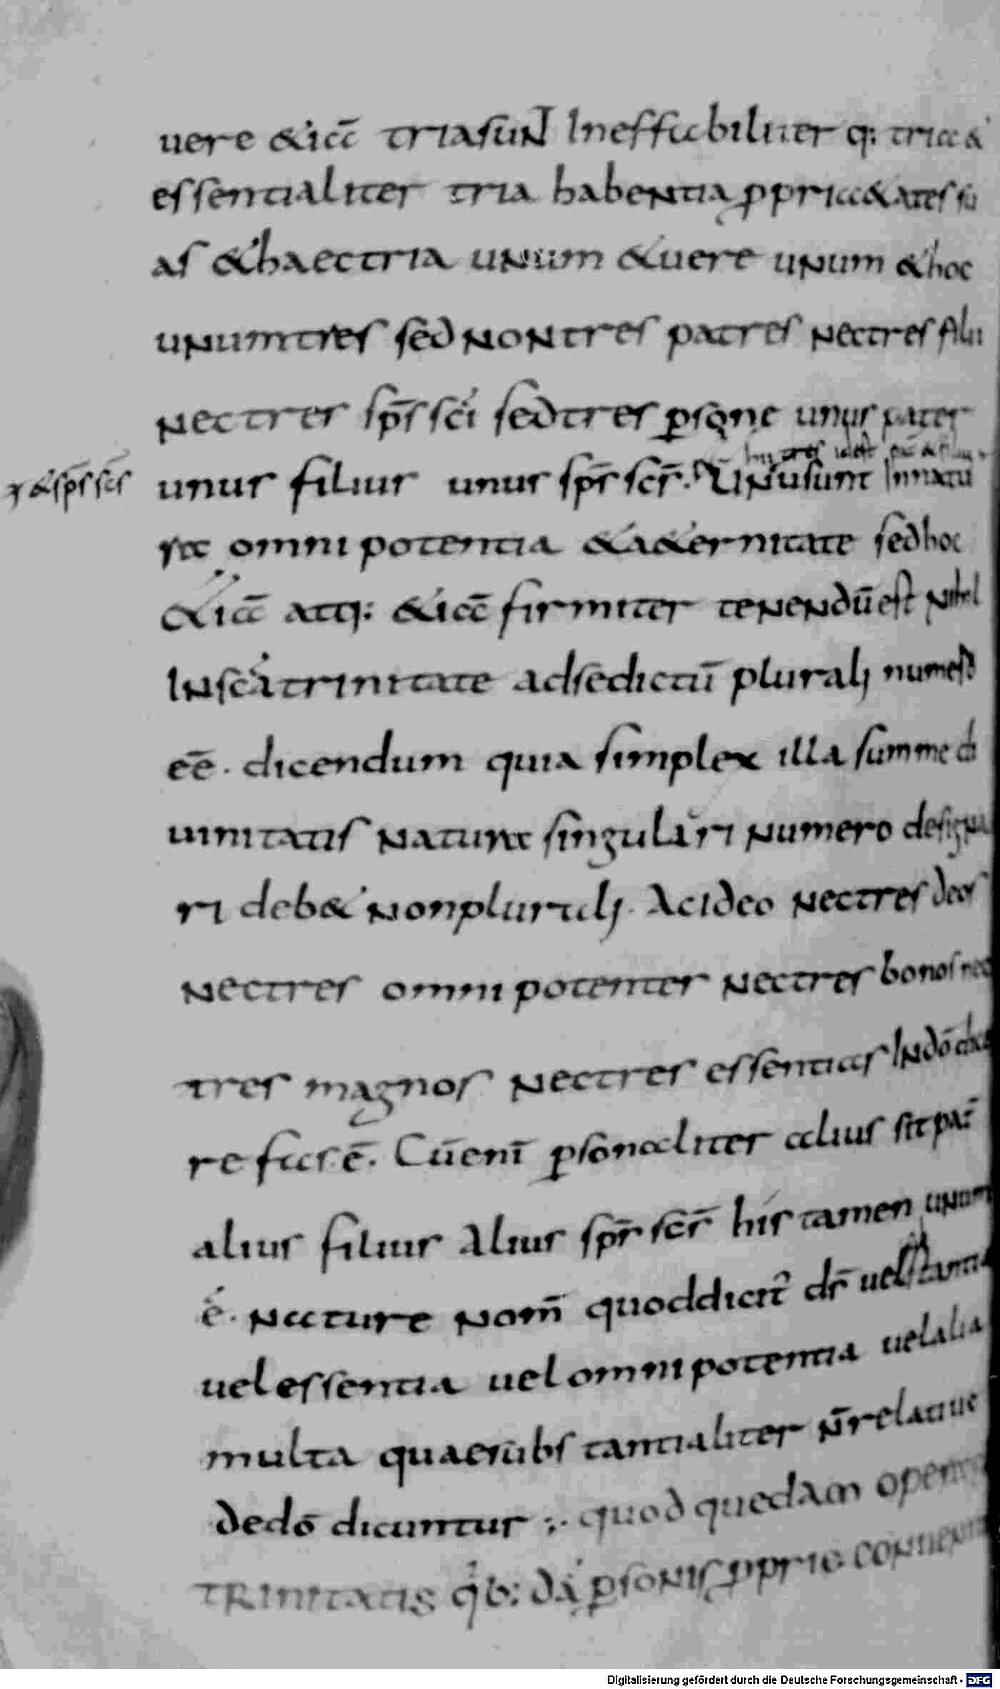 uere & iā trıa sunt Ineffabiliter q: tria &
essentialiter tria habentia ꝓprietates su
as & haec tria unum & uere unum & hoc
unum tres sed non tres patres nec tres filii
nec tres sp̄s sc̄i sed tres ꝑsone unus pater
hii tres id est pat̄ & filius
& sp̄s sc̄s
unus filius unus sp̄s sc̄s. Unū sunt In natu
ra omnipotentia & aeternitate sed hoc
atq: firmiter tenendū est nihil
In sc̄a trinitate ad se dictū plurali numero
eē. dicendum quia simplex illa summe di
uinitatis natura singulari numero designa
ri deb& non plurali. Ac ideo nec tres deos
nec tres omnipotentes nec tres bonos nec
tres magnos nec tres essentias In dō dice
re fas ē. Cū enī ꝑsonaliter alius sit pat̄
alius filius Alius sp̄s sc̄s his tamen unum
ē. nature nom̄ quod dicit̄ ds̄ uel
uel essentia uel omnipotentia uel alia
multa quae substantialiter n̄ relatiue
de dō dicuntur :. quod quedam opera
TRINITATIS ꝑsonis ꝓprie conueni